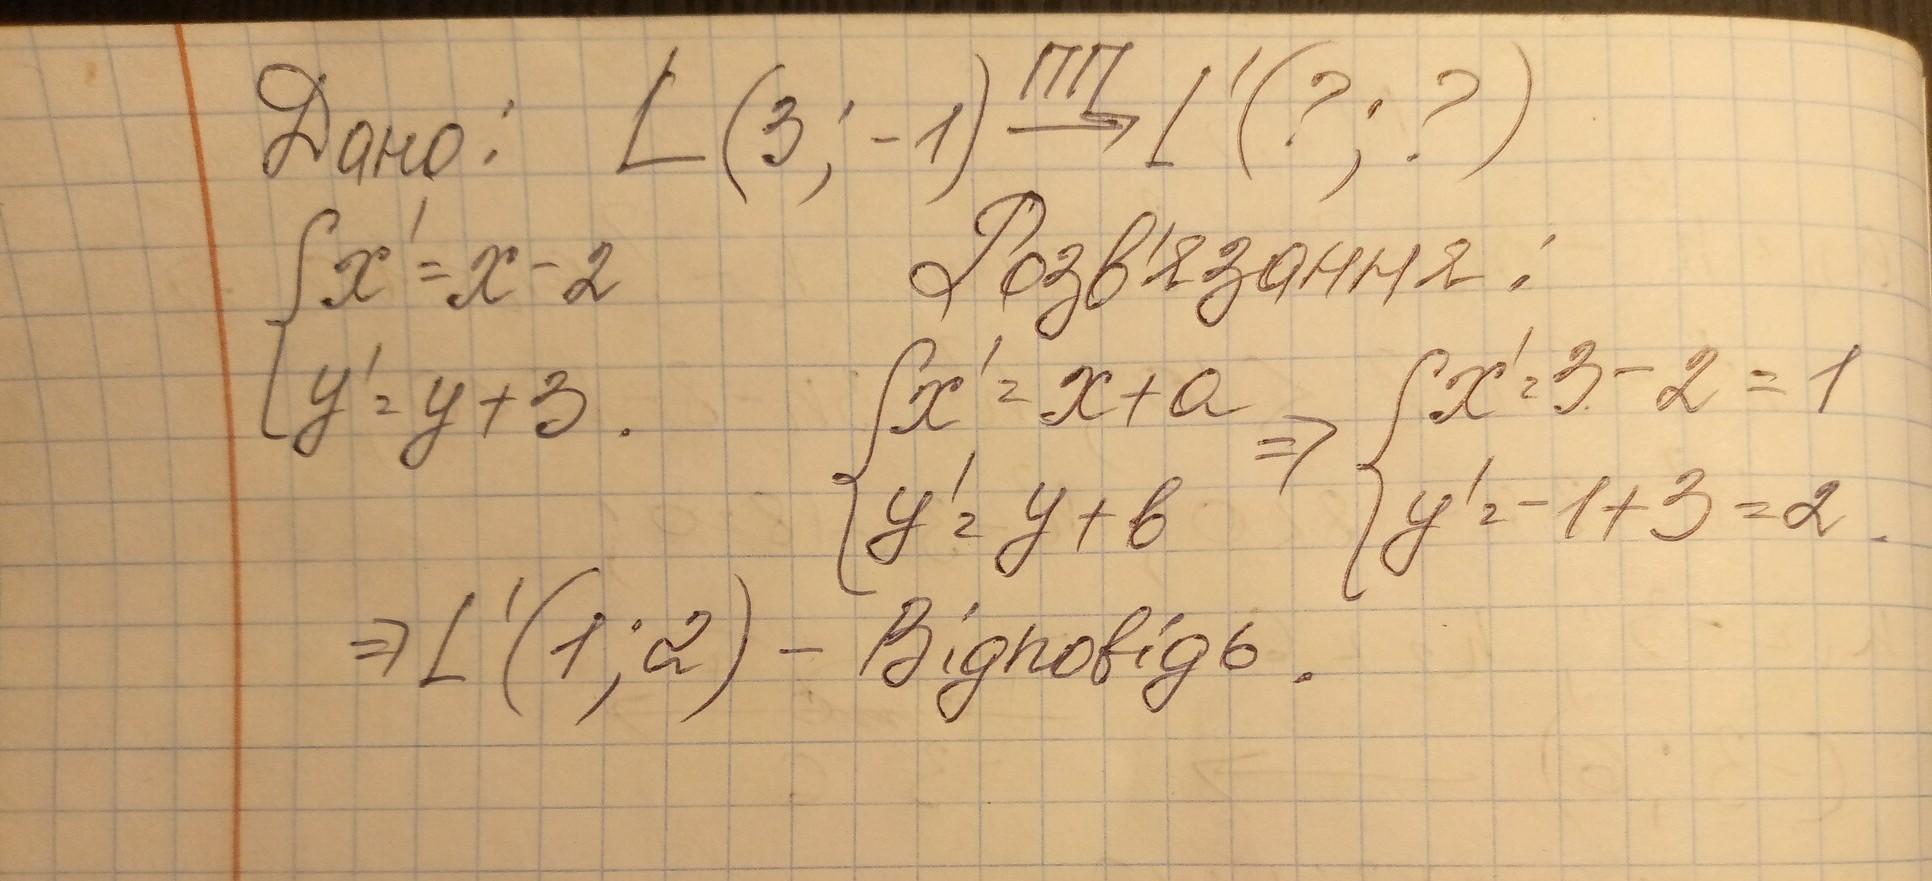 Дано: L(3;-1) ПП→ L'(?;?)
{x'=x-2
{y'=y+3.
Розв'язання:
{x'=x+a
{y'=y+b
⇒ {x'=3-2=1
{y'=-1+3=2.
⇒ L'(1;2) - Відповідь.